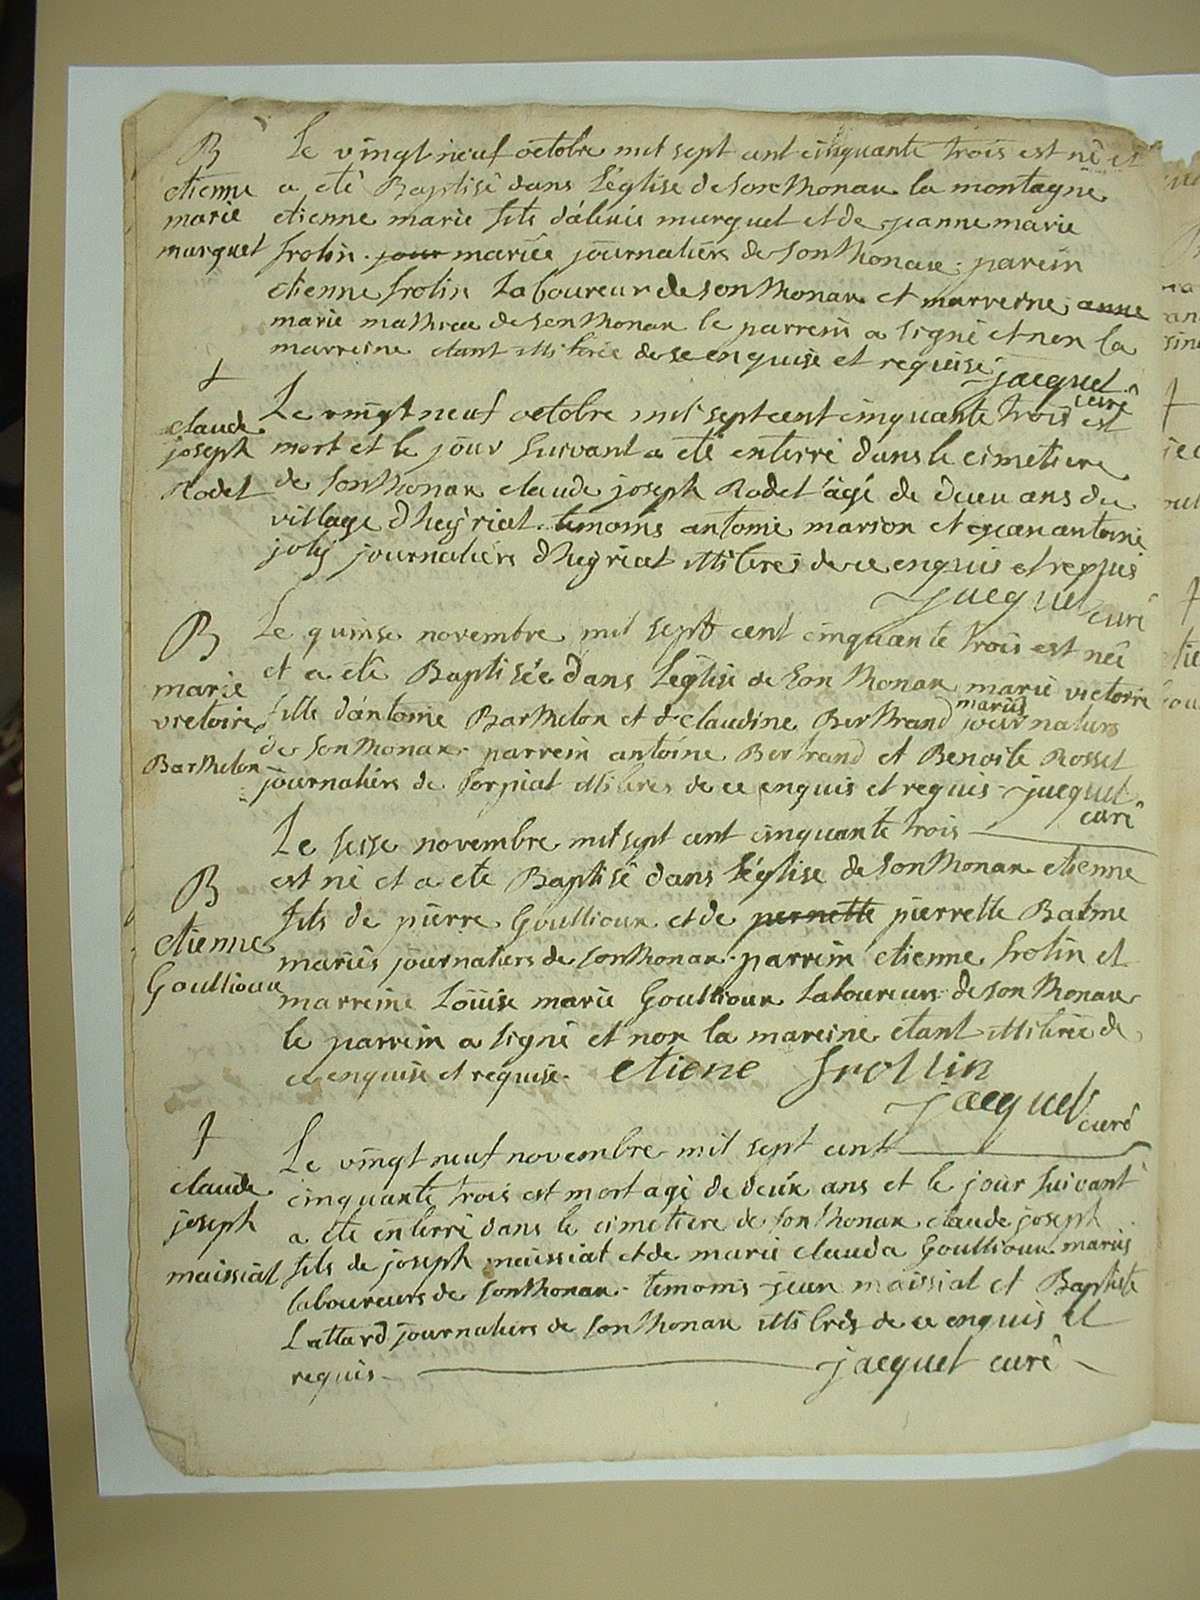 B
etienne
marie
murguet
Le vingt neuf octobre mil sept cent cinquante trois est né et
a eté Baptisé dans L'église de Sonthonax la montagne
etienne marie fils d'alexis murguet et de jeanne marie
frolin. jour mariés journaliers de Sonthonax. parein
etienne frolin Laboureur de Sonthonax et marreine anne
marie de Sonthonax le parrein a signé et non la
marreine etant illiterée de ce enquise et requise. jacquet
curé
†
claude
joseph
Rodet
Le vingt neuf octobre mil sept cent cinquante trois est
mort et le jour suivant a eté enterré dans le cimetiere
de Sonthonax claude joseph Rodet âgé de deux ans du
village d'heyriat. temoins antoine marion et jean antoine
joly journaliers d'heyriat illiterés de ce enquis et requis
jacquet
curé
B
marie
victoire
Barthelon
Le quinse novembre mil sept cent cinquante trois est née
et a eté Baptisée dans L'église de Sonthonax marie victoire
fille d'antoine Barthelon et de claudine Bertrand mariés journaliers
de Sonthonax. parrein antoine Bertrand et Benoite Rosset
journaliers de Sorpiat illiterés de ce enquis et requis. jacquet
curé
B
etienne
Goullioux
Le sesse novembre mil sept cent cinquante trois
est né et a eté Baptisé dans L'église de Sonthonax etienne
fils de pierre Goullioux et de pernette pierrette Balme
mariés journaliers de Sonthonax. parrein etienne frolin et
marreine Loüise marie Goullioux Laboureurs de Sonthonax
le parrein a signé et non la mareine etant illiterée de
ce enquise et requise. etiene frollin
jacquet
curé
†
claude
joseph
maissiat
Le vingt neuf novembre mil sept cent
cinquante trois est mort agé de deux ans et le jour suivant
a eté enterré dans le cimetiere de Sonthonax claude joseph
fils de joseph maissiat et de marie clauda Goullioux mariés
laboureurs de Sonthonax. temoins jean maissiat et Baptiste
Lattard journaliers de Sonthonax illiterés de ce enquis et
requis
jacquet curé